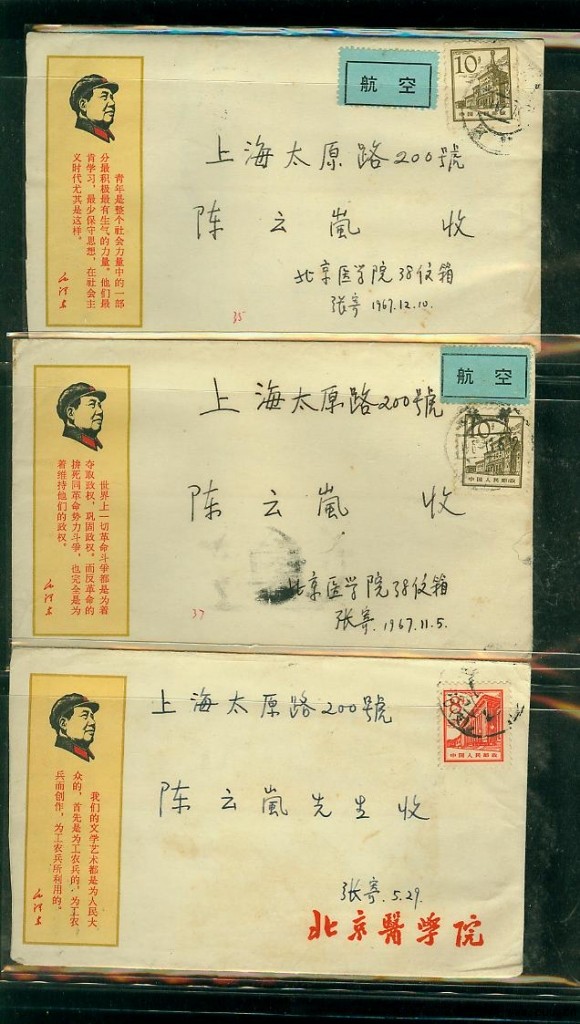 青年是整个社会力量中的一部
分最积极最有生气的力量。他们最
肯学习，最少保守思想，在社会主
义时代尤其是这样。
毛泽东
航空
10
中国人民邮政
上海太原路200號
陈云嵐 收
北京医学院38信箱
张寄 1967.12.10.
35
世界上一切革命斗争都是为着
夺取政权，巩固政权。而反革命的
拚死同革命势力斗争，也完全是为
着维持他们的政权。
毛泽东
航空
10
中国人民邮政
上海太原路200號
陈云嵐 收
北京医学院38信箱
张寄.1967.11.5.
37
我们的文学艺术都是为人民大
众的，首先是为工农兵的，为工农
兵而创作，为工农兵所利用的。
毛泽东
中国人民邮政
上海太原路200號
陈云嵐先生收
张寄.5.29.
北京醫学院